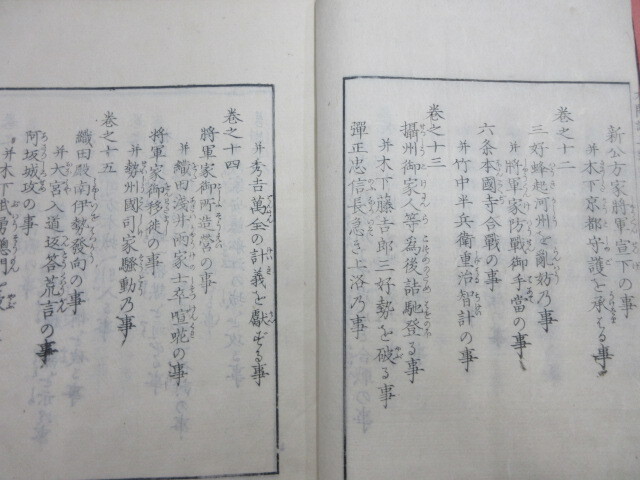 新公方家將軍宣下の事
并木下京都守護を承はる事
卷之十二
三好蜂起河州を亂妨乃事
并將軍家防戰御手當の事
六条本國寺合戰の事
并竹中半兵衛重治智計の事
卷之十三
攝州御家人等為後詰馳登る事
并木下藤吉郎三好勢を破る事
彈正忠信長急き上洛乃事
并秀吉萬全の計義を獻ずる事
卷之十四
將軍家御所造營の事
并織田淺井両家士卒喧𠵅の事
將軍家御移徙の事
并勢州國司家騷動乃事
卷之十五
織田殿南伊勢發向の事
并大宮入道返答荒吉の事
阿坂城攻の事
并木下